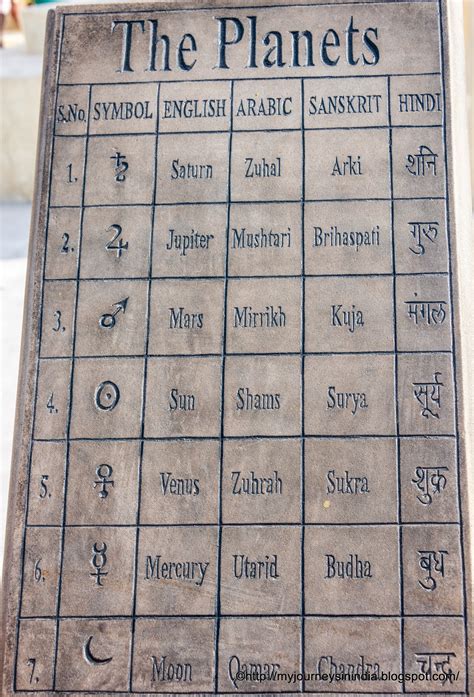 The Planets
S.No. SYMBOL ENGLISH ARABIC SANSKRIT HINDI
1. ♄ Saturn Zuhal Arki शनि
2. ♃ Jupiter Mushtari Brihaspati गुरु
3. ♂ Mars Mirrikh Kuja मंगल
4. ☉ Sun Shams Surya सूर्य
5. ♀ Venus Zuhrah Sukra शुक्र
6. ☿ Mercury Utarid Budha बुध
7. ☾ Moon Qamar Chandra चन्द्र
@http://myjourneysinindia.blogspot.com/